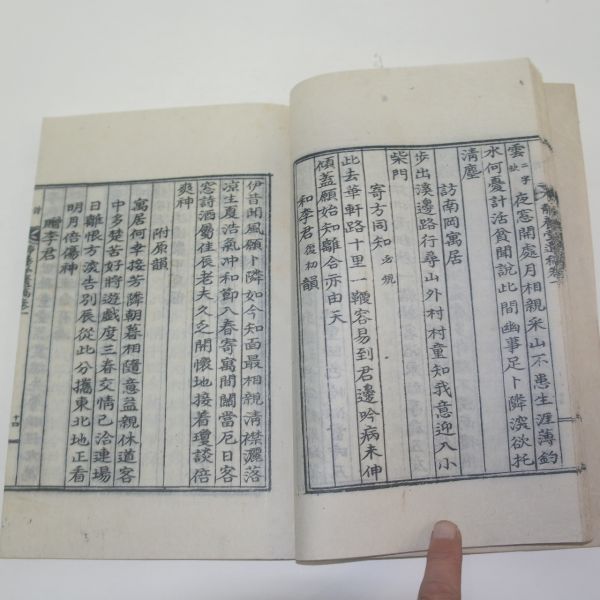 雲二字缺夜窓開處月相親采山不患生涯薄釣
水何憂計活貧聞說此間幽事足卜隣濱欲托
淸塵
訪南岡寓居
步出溪邊路行尋山外村村童知我意迎入小
柴門
寄方同知
此去華軒路十里一鞭容易到君邊吟病未伸
傾盖願始知離合亦由天
和李君復初韻
伊昔聞風願卜隣如今知面最相親淸襟灑落
凉生夏浩氣冲和節入春寄寓閒關當厄日客
窓詩酒屬佳辰老夫久乏開懷地接着瓊談倍
爽神
附原韻
寓居何幸接芳隣朝暮相隨意益親休道客
中多楚苦好將遊戱度三春交情已洽連場
日離恨方濃告別辰從此分攜東北地正看
明月倍傷神
贈李君
十四